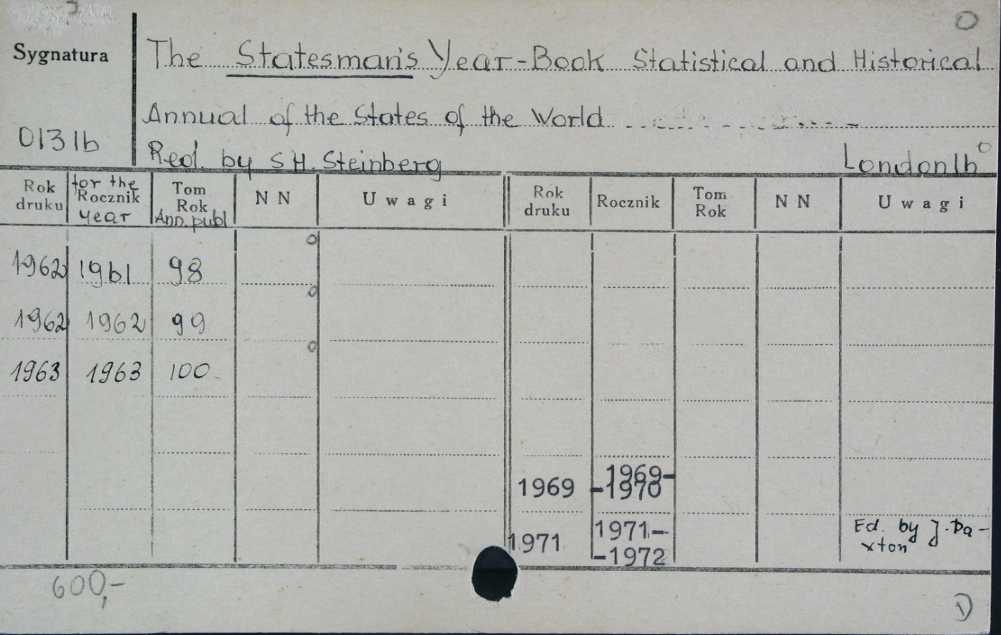 Sygnatura
The Statesman's Year-Book Statistical and Historical
Annual of the States of the World
0131b
Red. by S.H. Steinberg London 1b
Rok druku for the Rocznik year Tom Rok Ann. publ N N U w a g i Rok druku Rocznik Tom Rok N N U w a g i
1962 1961 98
1962 1962 99
1963 1963 100
1969 1969-
-1970
1971 1971-
-1972 Ed. by J. Pa-
xton
600,-